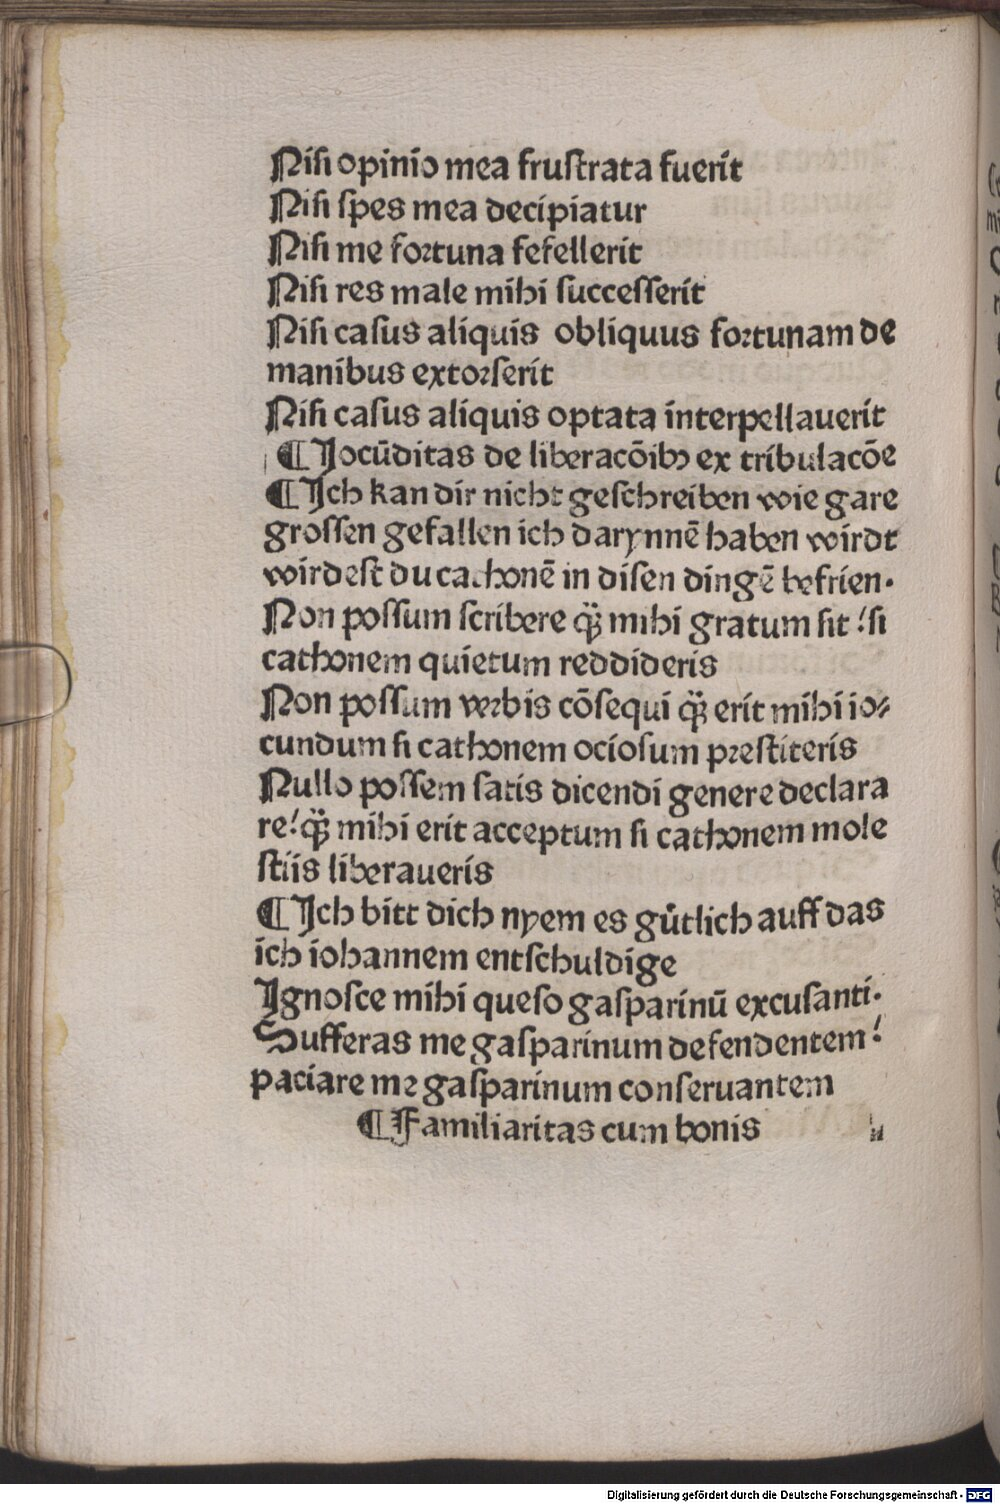 Niſi opinio mea fruſtrata fuerit
Niſi ſpes mea decipiatur
Niſi me fortuna fefellerit
Niſi res male mihi ſucceſſerit
Niſi caſus aliquis obliquus fortunam de
manibus extorſerit
Niſi caſus aliquis optata interpellauerit
¶Jocūditas de liberacōibꝫ ex tribulacōe
¶Jch kan dir nicht geſchreiben wie gare
groſſen gefallen ich darynnē haben wirdt
wirdeſt du cathonē in diſen dingē befrien.
Non poſſum ſcribere q̈ꝫ mihi gratum ſit! ſi
cathonem quietum reddideris
Non poſſum verbis cōſequi q̈ꝫ erit mihi io⸗
cundum ſi cathonem ocioſum preſtiteris
Nullo poſſem ſatis dicendi genere declara
re! q̈ꝫ mihi erit acceptum ſi cathonem mole
ſtiis liberaueris
¶Jch bitt dich nyem es gütlich auff das
ich iohannem entſchuldige
Jgnoſce mihi queſo gaſparinū excuſanti.
Sufferas me gaſparinum defendentem!
paciare me gaſparinum conſeruantem
¶Familiaritas cum bonis
Digitalisierung gefördert durch die Deutsche Forschungsgemeinschaft - DFG